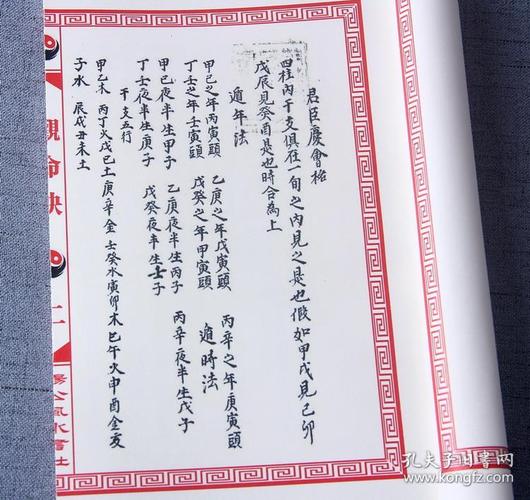 君臣慶會格
四柱内干支俱在一旬之内見之是也假如甲戌見己卯
戊辰見癸酉是也時合為上
遁年法
甲己之年丙寅頭 乙庚之年戊寅頭 丙辛之年庚寅頭
丁壬之年壬寅頭 戊癸之年甲寅頭 遁時法
甲己夜半生甲子 乙庚夜半生丙子 丙辛夜半生戊子
丁壬夜半生庚子 戊癸夜半生壬子
干支五行
甲乙木 丙丁火戊己土庚辛金 壬癸水寅卯木巳午火申酉金亥
子水 辰戌丑未土
觀命訣
二
楊公風水書社
孔夫子旧書网
www.kongfz.com